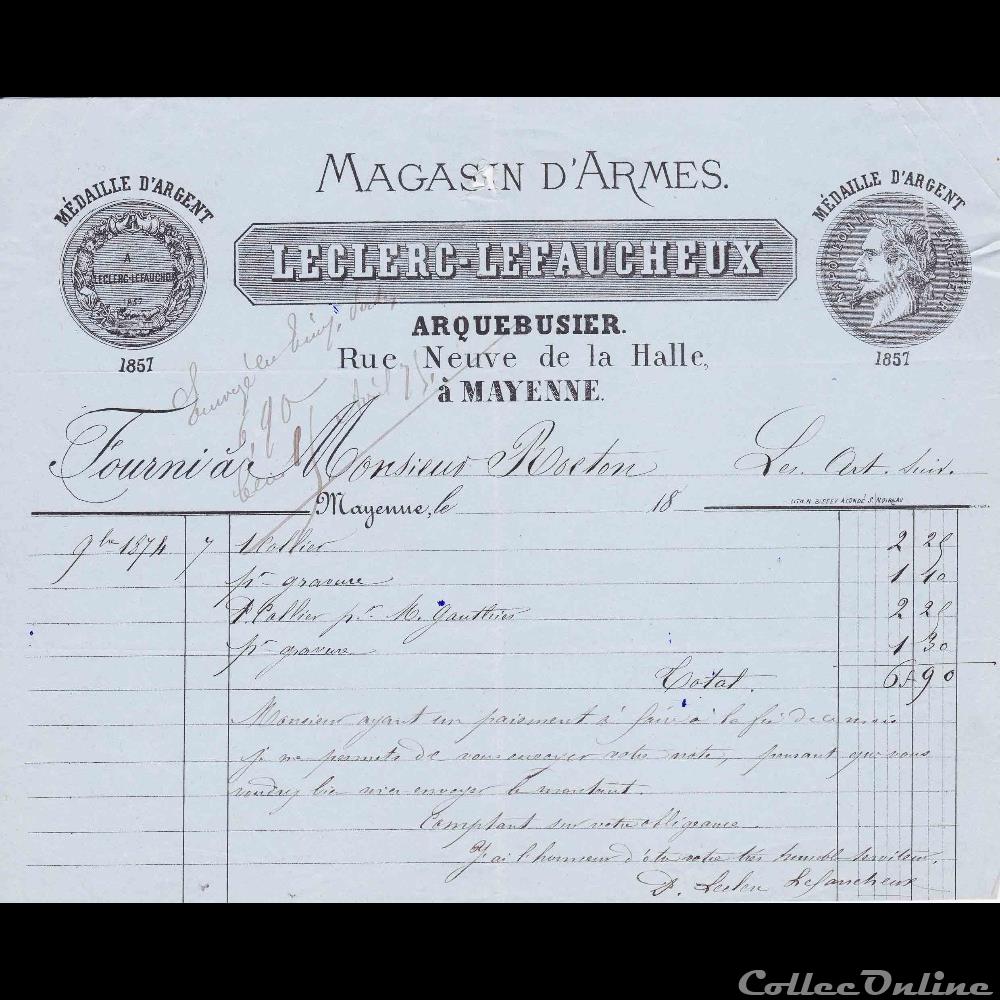 MAGASIN D'ARMES.
MÉDAILLE D'ARGENT
A
LECLERC-LEFAUCHEUX
1857
1857
LECLERC-LEFAUCHEUX
MÉDAILLE D'ARGENT
NAPOLEON III
1857
ARQUEBUSIER.
Rue Neuve de la Halle,
à MAYENNE.
6,90
Fourni à Monsieur Roeton Les Art. suiv.
LITH. N. BIFFEY A CONDÉ S. NOIREAU
Mayenne, le 18
9bre 1874 7 1 Collier 2 25
pr gravure 1 10
1 Collier pr M. Gauthier 2 25
pr gravure 1 30
Total. 6f 90
Monsieur ayant un paiement à faire à la fin de ce mois
je me permets de vous envoyer votre note, pensant que vous
voudrez bien m'en envoyer le montant.
Comptant sur votre obligeance.
J'ai l'honneur d'être votre très humble serviteur.
Leclerc Lefaucheux
CollecOnline